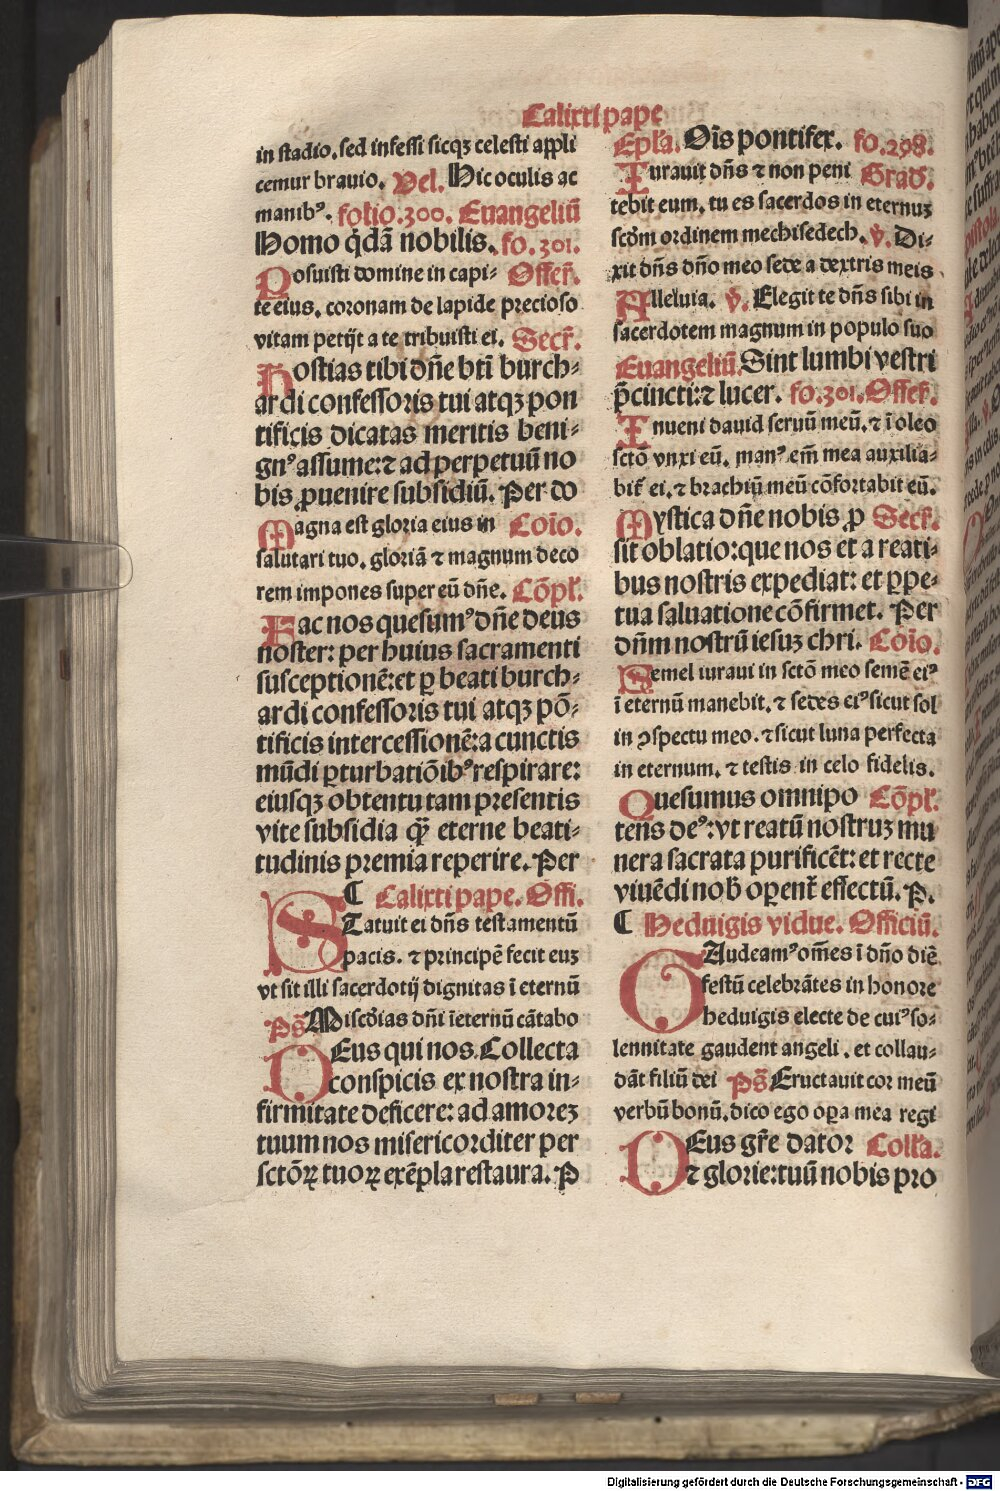 Calixti pape
in stadio. sed infessi sicqꝫ celesti appli
cemur brauio. Vel. Hic oculis ac
manibꝰ. folio.300. Euangeliū
Homo q̇dā nobilis. fo. 301.
Posuisti domine in capi- Offer̄.
te eius. coronam de lapide precioso
vitam petijt a te tribuisti ei. Secr̄.
Hostias tibi dn̄e bti̅ burch-
ardi confessoris tui atqꝫ pon
tificis dicatas meritis beni-
gnꝰ assume: ⁊ ad perpetuū no
bis ꝓuenire subsidiū. Per do
Magna est gloria eius in Co̅io.
salutari tuo. gloriā ⁊ magnum deco
rem impones super eū dn̄e. Cōpl̄.
Fac nos quesumꝰ dn̄e deus
noster: per huius sacramenti
susceptionē: et ꝑ beati burch-
ardi confessoris tui atqꝫ pō-
tificis intercessionē: a cunctis
mūdi ꝑturbatiōibꝰ respirare:
eiusqꝫ obtentu tam presentis
vite subsidia q̄ȝ eterne beati-
tudinis premia reperire. Per
¶ Calixti pape. Offi.
STatuit ei dn̄s testamentū
pacis. ⁊ principē fecit euꝫ
vt sit illi sacerdotij dignitas ī eternū
Ps̄ Misc̄dias dn̄i īeternū cātabo
DEus qui nos Collecta
conspicis ex nostra in-
firmitate deficere: ad amoreꝫ
tuum nos misericorditer per
sctōꝝ tuoꝝ exēpla restaura. P
Epl̄a. Oīs pontifex. fo.298.
Iurauit dn̄s ⁊ non peni Grad̄.
tebit eum. tu es sacerdos in eternuꝫ
scd̄m ordinem mechisedech. v̄. Di-
xit dn̄s dn̄o meo sede a dextris meis
Alleluia. v̄. Elegit te dn̄s sibi in
sacerdotem magnum in populo suo
Euangeliū. Sint lumbi vestri
p̄cincti: ⁊ lucer. fo.301. Offer̄.
Inueni dauid seruū meū. ⁊ ī oleo
sctō vnxi eū. manꝰ em̄ mea auxilia-
bit̄ ei. ⁊ brachiū meū cōfortabit eū.
Mystica dn̄e nobis ꝓ Secr̄.
sit oblatio: que nos et a reati-
bus nostris expediat: et ꝑpe-
tua saluatione cōfirmet. Per
dn̄m nostrū iesuꝫ chri. Co̅io.
Semel iuraui in sctō meo semē eiꝰ
ī eternū manebit. ⁊ sedes eiꝰ sicut sol
in ꝯspectu meo. ⁊ sicut luna perfecta
in eternum. ⁊ testis in celo fidelis.
Quesumus omnipo Cōpl̄.
tens deꝰ: vt reatū nostruꝫ mu
nera sacrata purificēt: et recte
viuēdi nob̄ oꝑent̄ effectū. P.
¶ Heduigis vidue. Officiū.
GAudeamꝰ om̄es ī dn̄o diē
festū celebrātes in honore
heduigis electe de cuiꝰ so-
lennitate gaudent angeli. et collau-
dāt filiū dei Ps̄ Eructauit cor meū
verbū bonū. dico ego oꝑa mea regi
DEus gr̄e dator Coll̄a.
⁊ glorie: tuū nobis pro
Digitalisierung gefördert durch die Deutsche Forschungsgemeinschaft - DFG